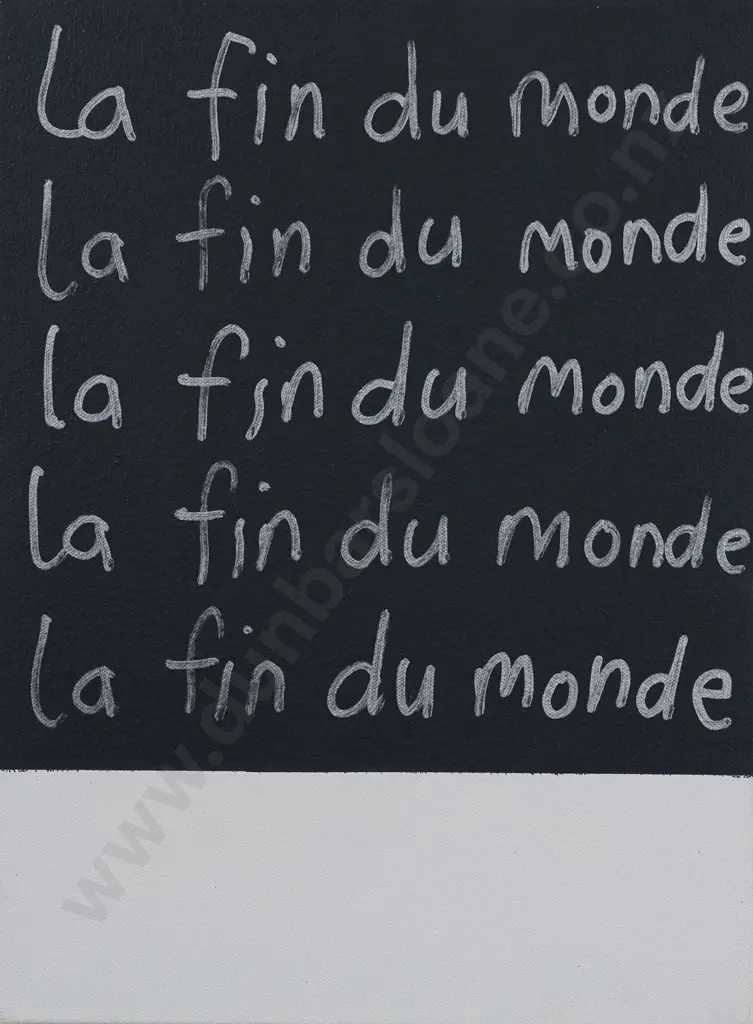 la fin du monde
la fin du monde
la fin du monde
la fin du monde
la fin du monde
www.dunbarsloane.co.nz